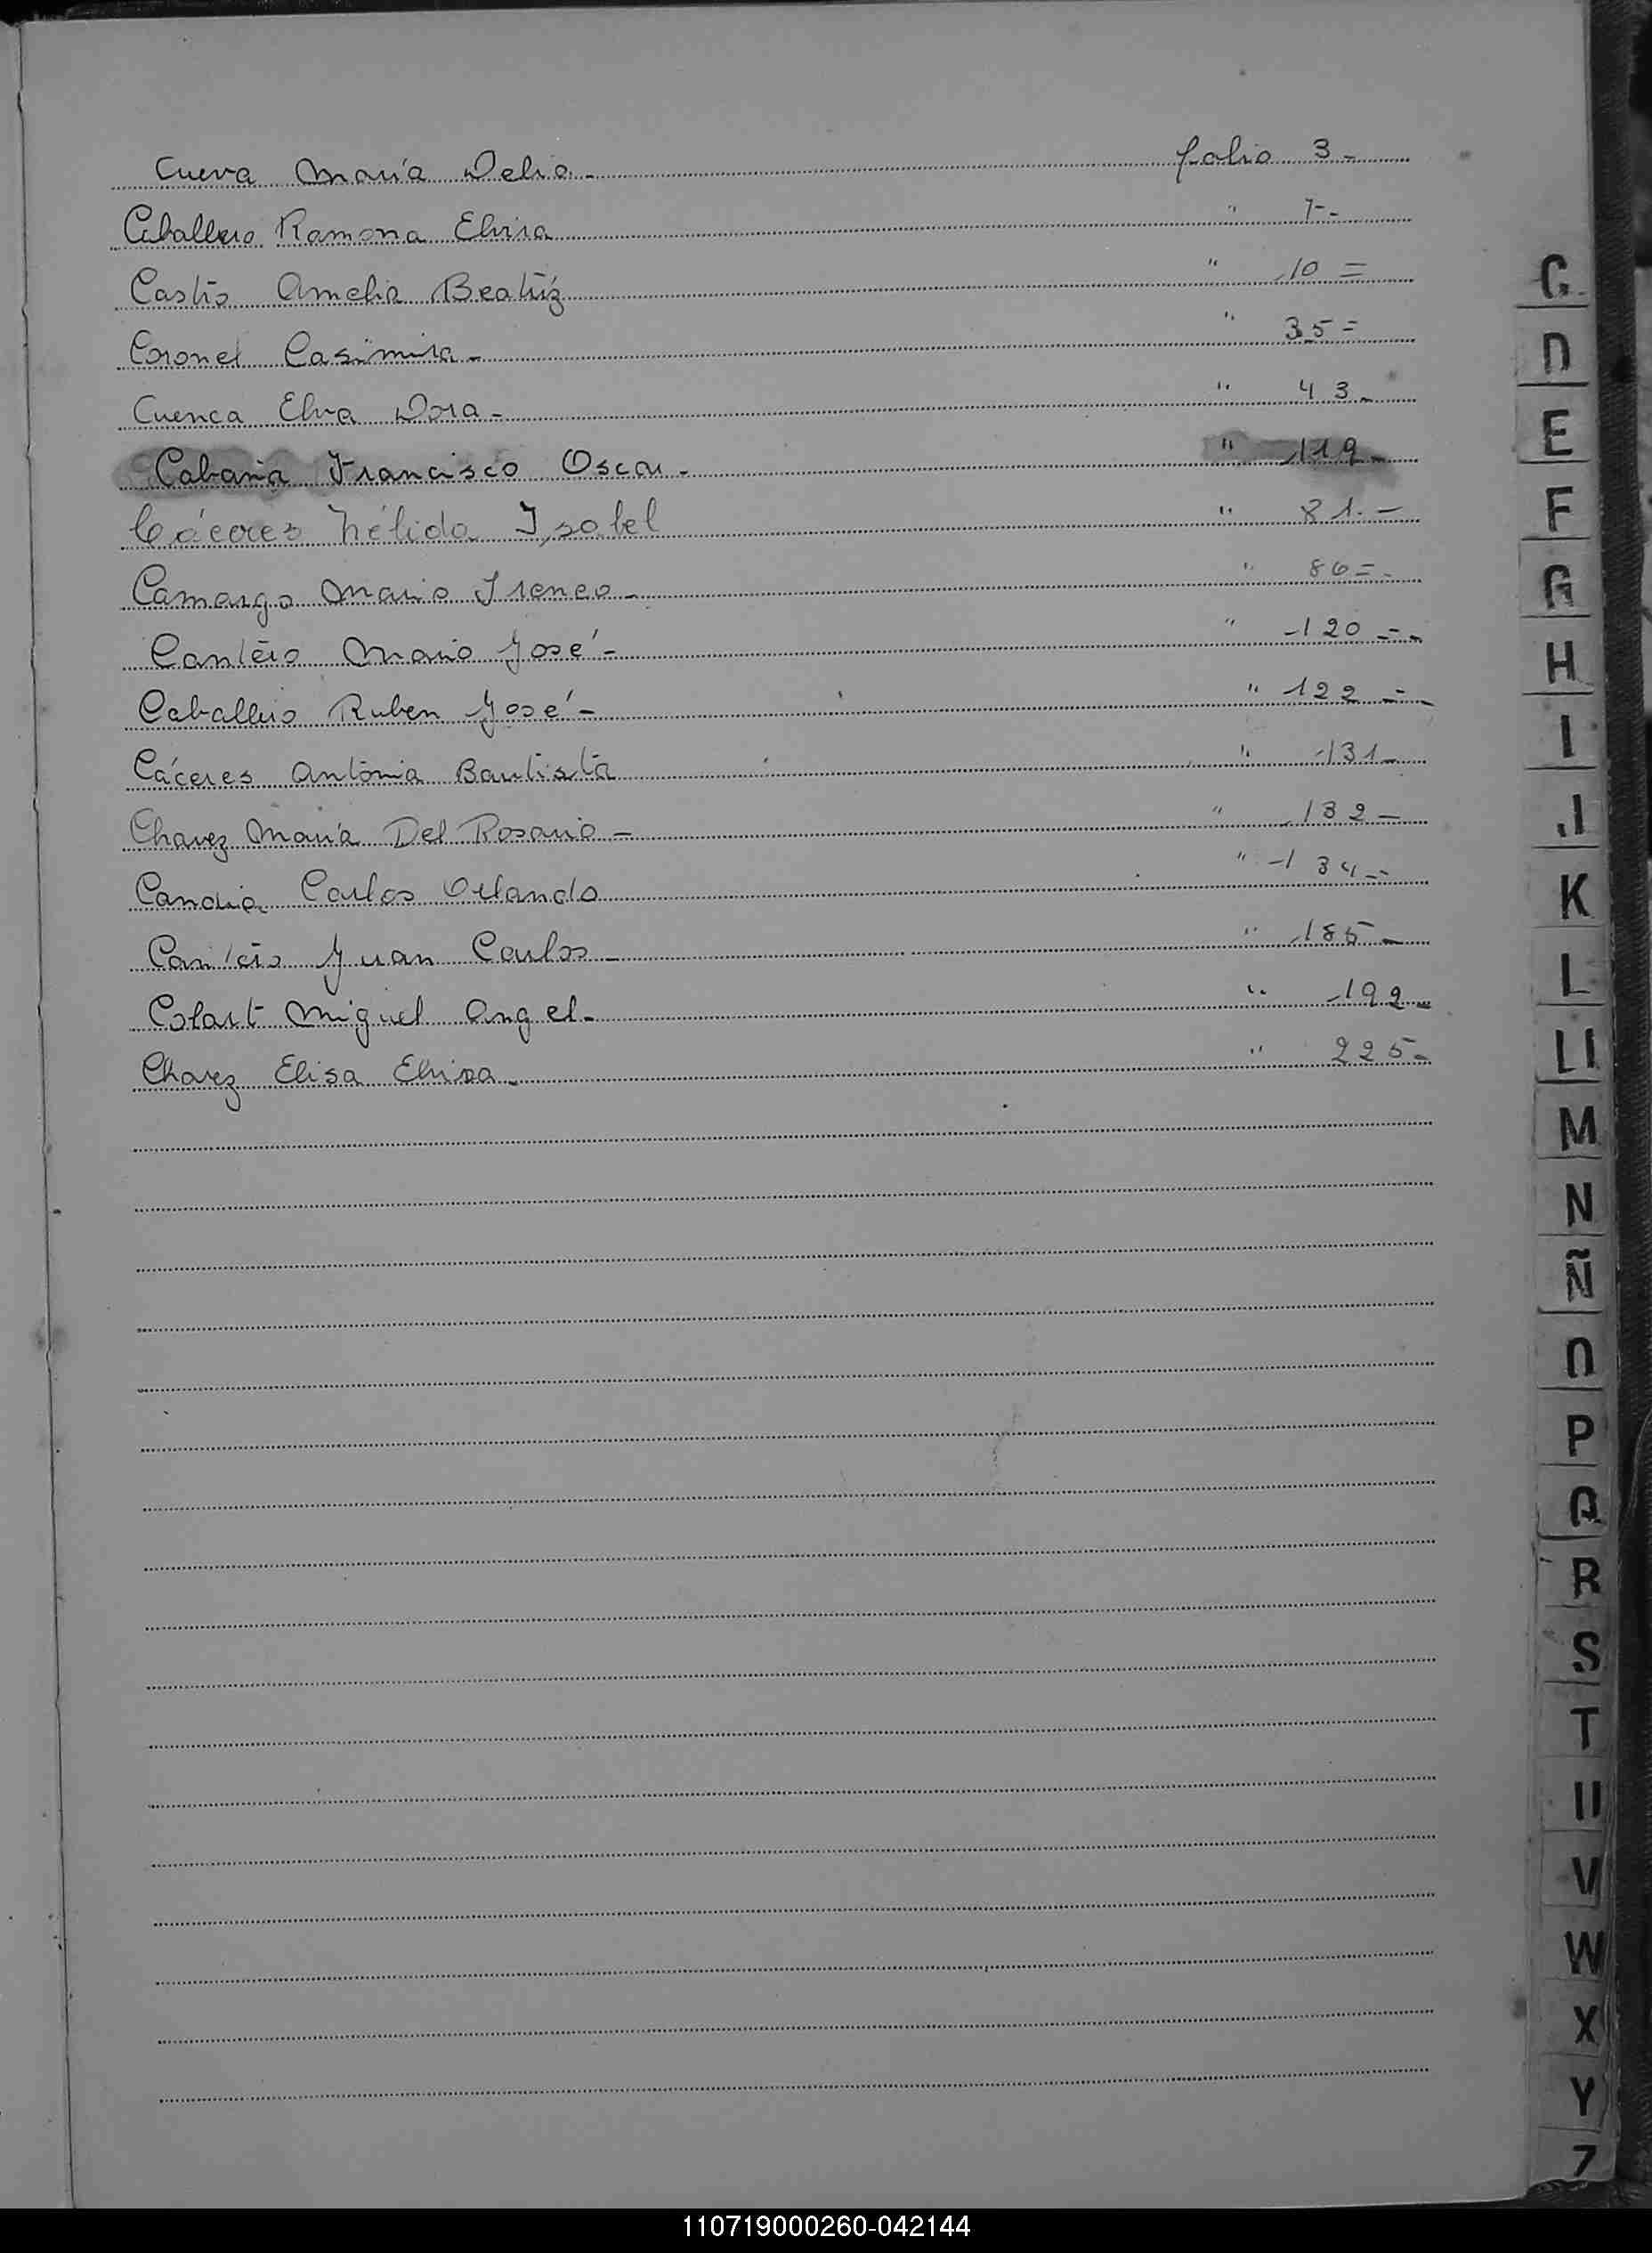 Cueva María Delia - folio 3 -
Caballero Ramona Elvira " 7 - -
Castro Amelia Beatríz " 10 =
Coronel Casimira - " 35 =
Cuenca Elva Dora - " 43 -
Cabaña Francisco Oscar - " 119 -
Cáceres Nélida Isabel " 81. -
Camargo Mario Ireneo - " 86 = -
Cantero Mario José - " 120 - - -
Caballero Ruben José - " 122 - - -
Cáceres Antonia Bautista " 131 -
Chavez María Del Rosario - " 132 -
Candia Carlos Orlando " 134 - -
Cantero Juan Carlos - " 185 -
Colart Miguel Angel - " 192 -
Chavez Elisa Elvira - " 225 -
C
D
E
F
G
H
I
J
K
L
Ll
M
N
Ñ
O
P
Q
R
S
T
U
V
W
X
Y
Z
110719000260-042144